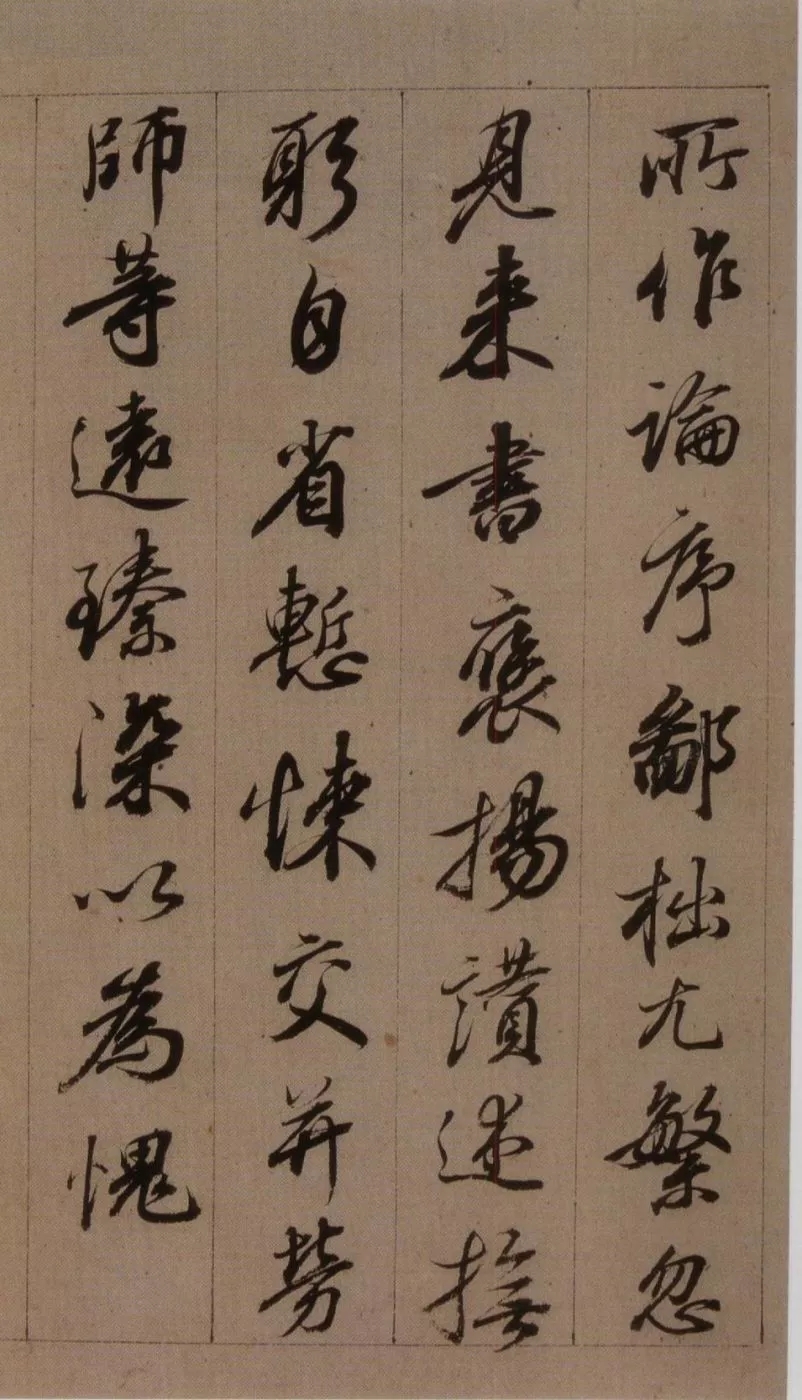 所作論序鄙拙尤繁忽
見来書褒揚讃述撫
躬自省慙悚交并勞
師等遠臻深以為愧